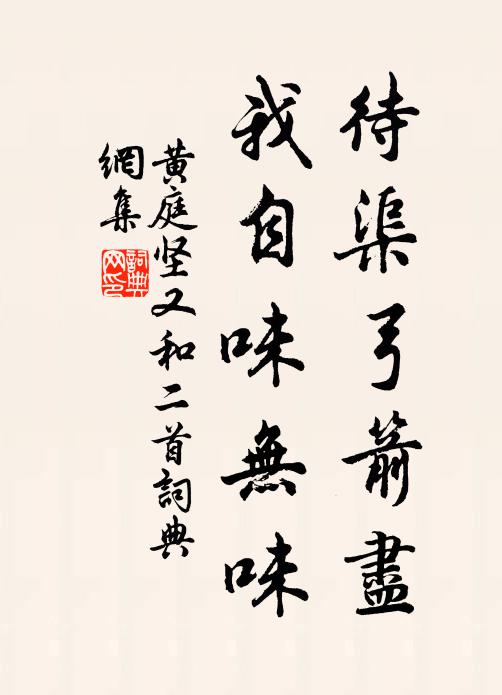 待渠弓箭盡
我自味無味
黄庭坚又和二首詞典
網集
詞典网印